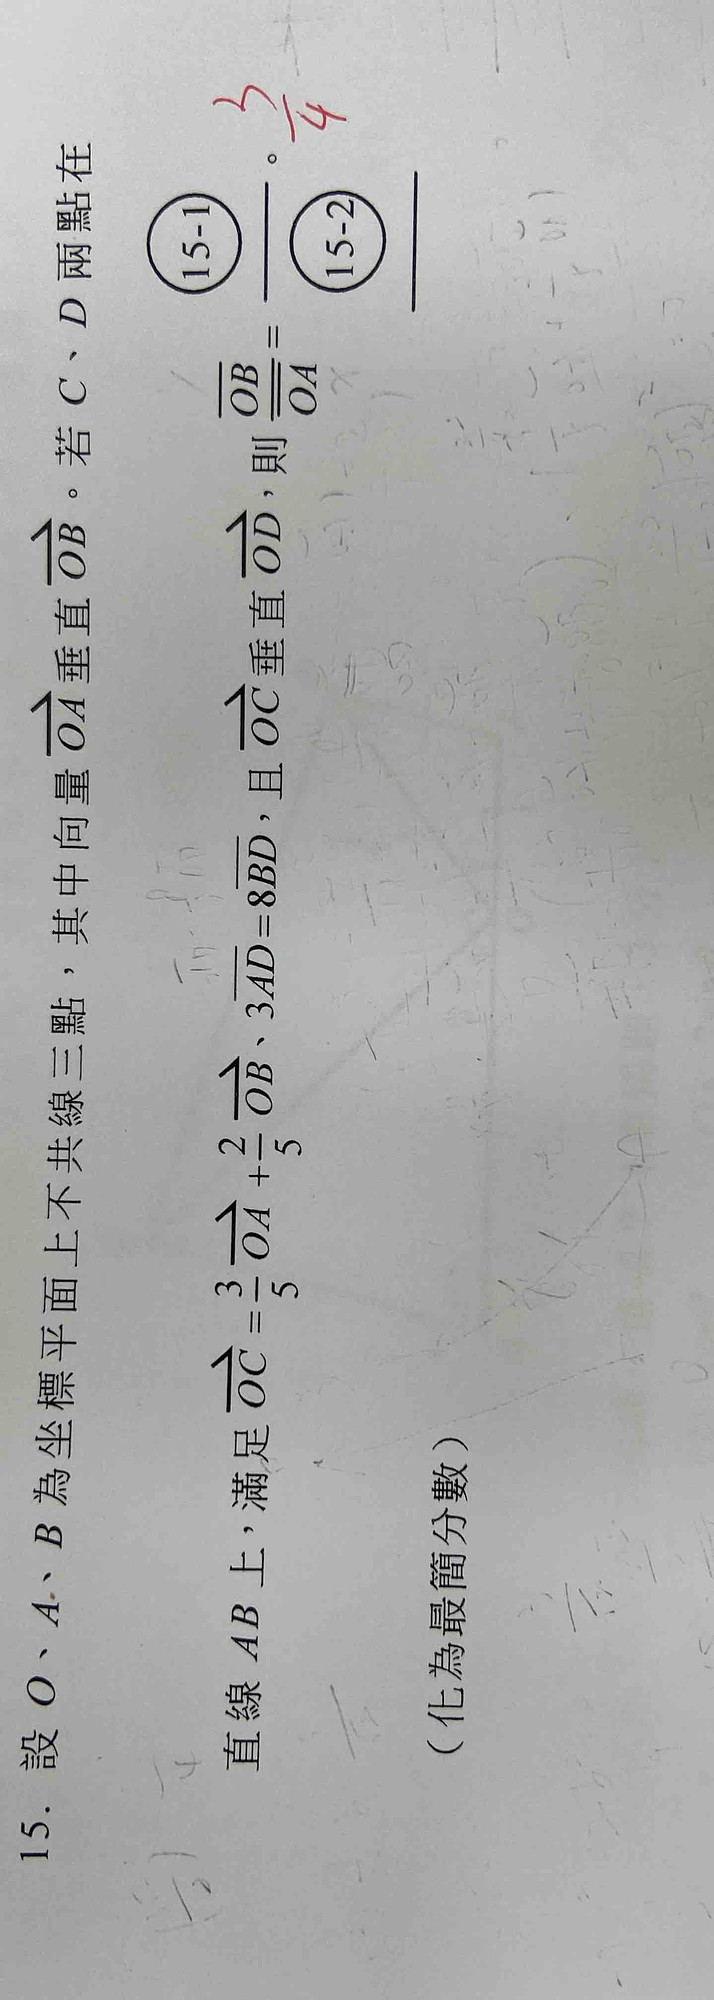 15. 設 O、A、B 為坐標平面上不共線三點，其中向量 \overrightarrow{OA} 垂直 \overrightarrow{OB}。若 C、D 兩點在
直線 AB 上，滿足 \overrightarrow{OC} = \frac{3}{5}\overrightarrow{OA} + \frac{2}{5}\overrightarrow{OB}、3\overline{AD} = 8\overline{BD}，且 \overrightarrow{OC} 垂直 \overrightarrow{OD}，則 \frac{\overline{OB}}{\overline{OA}} = \frac{(15-1)}{(15-2)}。 \frac{3}{4}
（化為最簡分數）